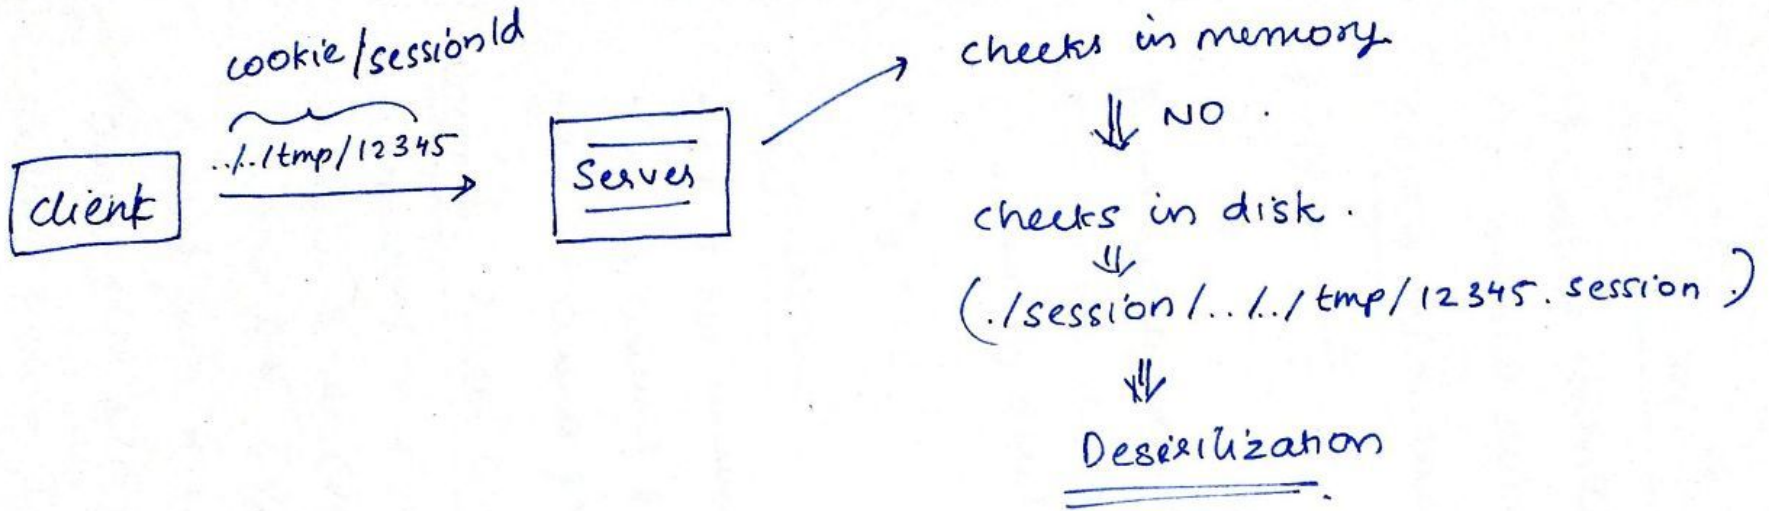 cookie/sessionId
../../tmp/12345
client
Server
checks in memory
NO .
checks in disk .
(./session/../../tmp/12345.session.)
Deserilization